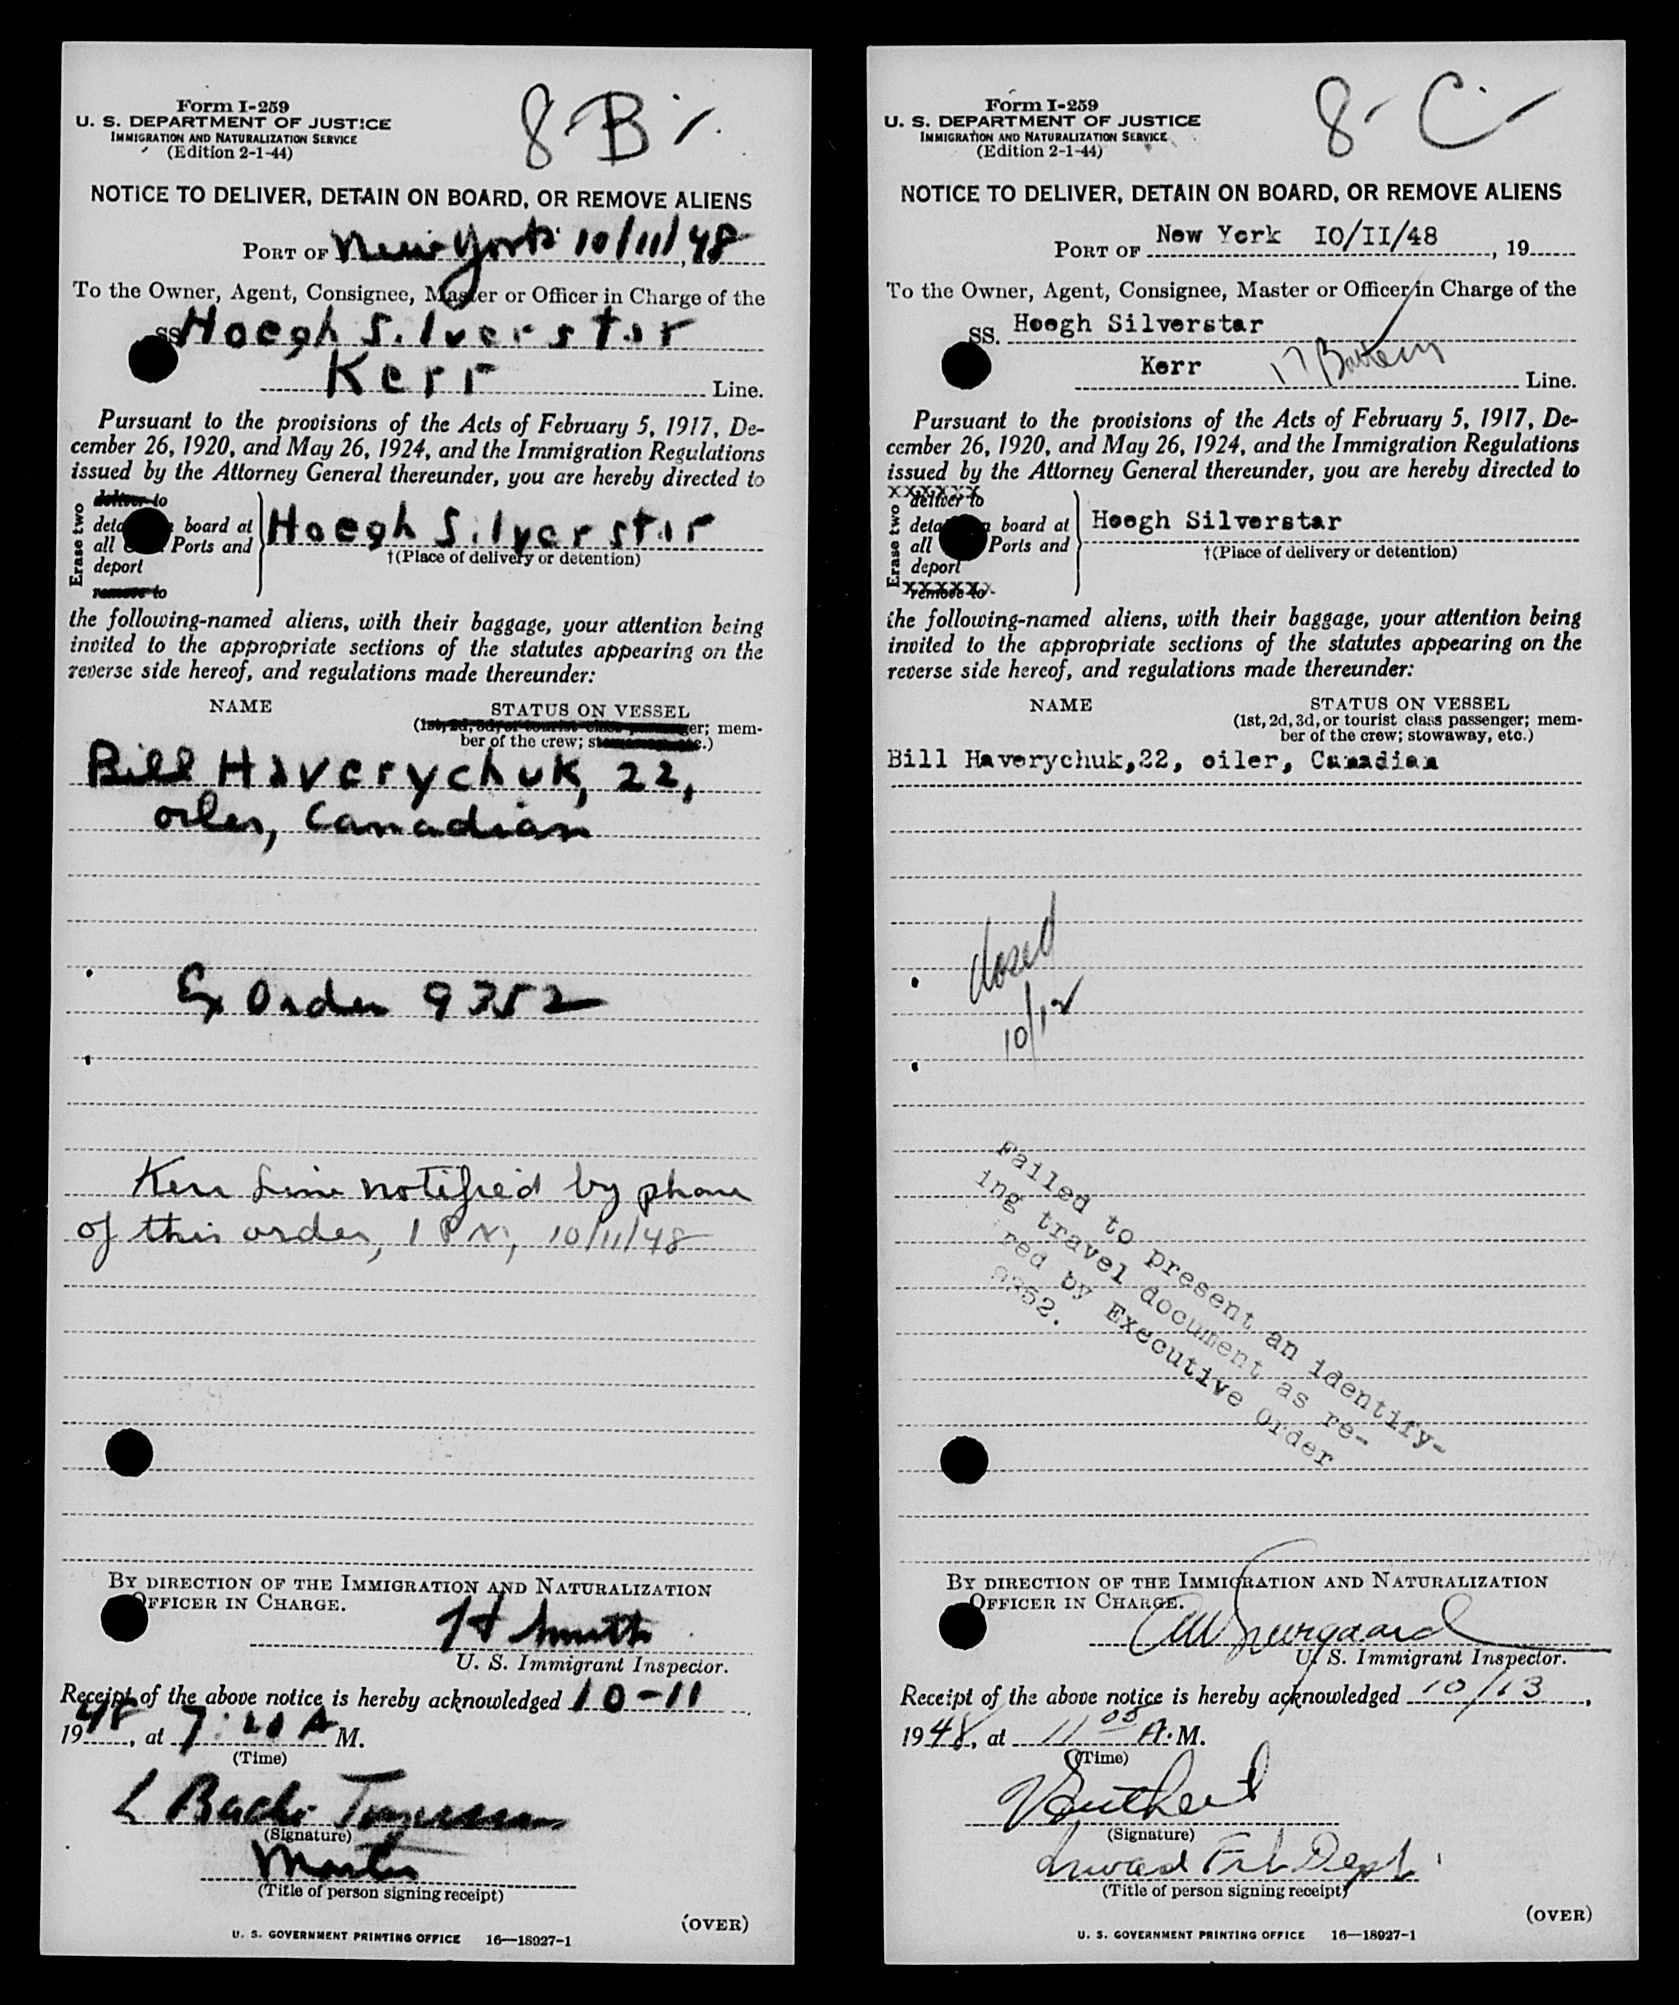 Form I-259
U. S. DEPARTMENT OF JUSTICE
IMMIGRATION AND NATURALIZATION SERVICE
(Edition 2-1-44)
8-B
NOTICE TO DELIVER, DETAIN ON BOARD, OR REMOVE ALIENS
PORT OF New York 10/11/48
To the Owner, Agent, Consignee, Master or Officer in Charge of the
SS Hoegh Silverstar
Kerr Line.
Pursuant to the provisions of the Acts of February 5, 1917, De-
cember 26, 1920, and May 26, 1924, and the Immigration Regulations
issued by the Attorney General thereunder, you are hereby directed to
Erase two
deliver to
board at
all Ports and
deport
remove to
Hoegh Silverstar
†(Place of delivery or detention)
the following-named aliens, with their baggage, your attention being
invited to the appropriate sections of the statutes appearing on the
reverse side hereof, and regulations made thereunder:
NAME STATUS ON VESSEL
(1st, 2d, 3d, or tourist class passenger; mem-
ber of the crew; stowaway, etc.)
Bill Haverychuk, 22,
oiler, Canadian
Ex Order 9352
Kerr Line notified by phone
of this order, 1 PM, 10/11/48
BY DIRECTION OF THE IMMIGRATION AND NATURALIZATION
OFFICER IN CHARGE.
H Smith
U. S. Immigrant Inspector.
Receipt of the above notice is hereby acknowledged 10-11
1948, at 7: A M.
(Time)
L
(Signature)
Master
(Title of person signing receipt)
(OVER)
U. S. GOVERNMENT PRINTING OFFICE 16—18927-1
Form I-259
U. S. DEPARTMENT OF JUSTICE
IMMIGRATION AND NATURALIZATION SERVICE
(Edition 2-1-44)
8-C
NOTICE TO DELIVER, DETAIN ON BOARD, OR REMOVE ALIENS
PORT OF New York IO/II/48, 19
To the Owner, Agent, Consignee, Master or Officer in Charge of the
SS. Hoegh Silverstar
Kerr 17 Battery Line.
Pursuant to the provisions of the Acts of February 5, 1917, De-
cember 26, 1920, and May 26, 1924, and the Immigration Regulations
issued by the Attorney General thereunder, you are hereby directed to
Erase two
xxxxxx
deliver to
board at
all Ports and
deport
remove to
Hoegh Silverstar
†(Place of delivery or detention)
the following-named aliens, with their baggage, your attention being
invited to the appropriate sections of the statutes appearing on the
reverse side hereof, and regulations made thereunder:
NAME STATUS ON VESSEL
(1st, 2d, 3d, or tourist class passenger; mem-
ber of the crew; stowaway, etc.)
Bill Haverychuk,22, oiler, Canadian
closed
10/12
Failed to present an identify-
ing travel document as re-
red by Executive Order
9352.
BY DIRECTION OF THE IMMIGRATION AND NATURALIZATION
OFFICER IN CHARGE.
U. S. Immigrant Inspector.
Receipt of the above notice is hereby acknowledged 10/13,
1948, at 11 05 A. M.
(Time)
(Signature)
Inward Frt Dept.
(Title of person signing receipt)
(OVER)
U. S. GOVERNMENT PRINTING OFFICE 16—18927-1